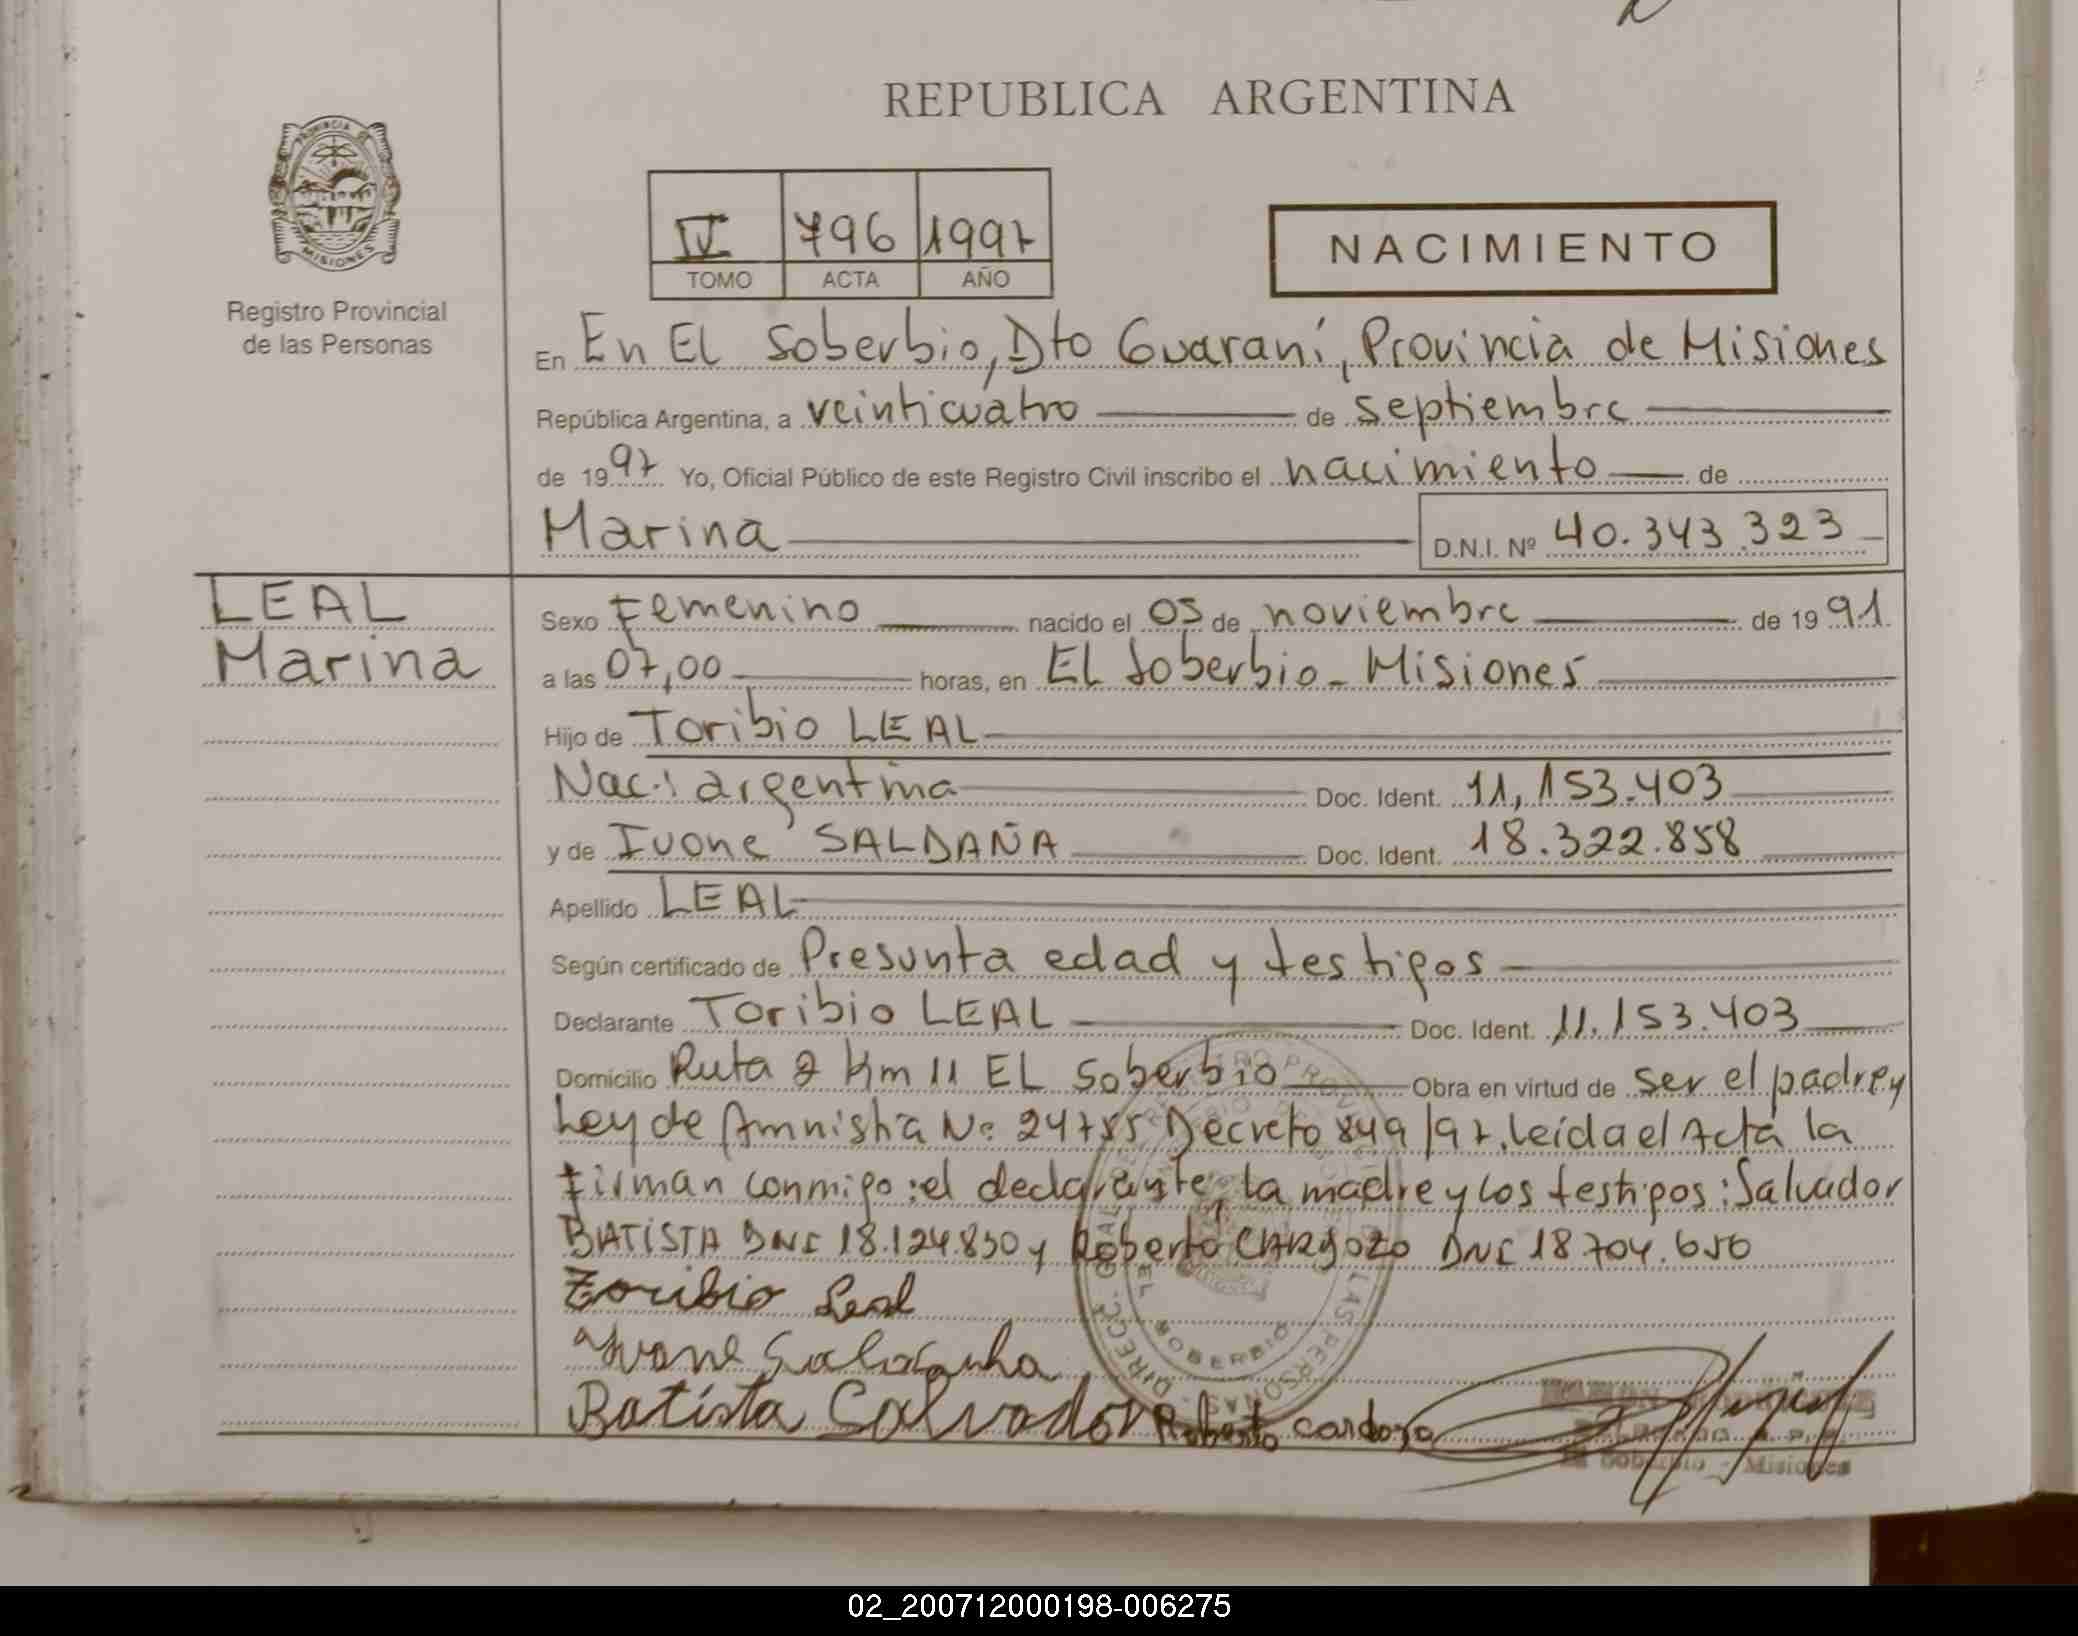 REPUBLICA ARGENTINA
PROVINCIA DE
MISIONES
Registro Provincial
de las Personas
IV 796 1997
TOMO ACTA AÑO
NACIMIENTO
En En El Soberbio, Dto Guaraní, Provincia de Misiones
República Argentina, a veinticuatro de septiembre
de 1997 Yo, Oficial Público de este Registro Civil inscribo el nacimiento de
Marina D.N.I. Nº 40.343.323
LEAL
Marina
Sexo Femenino nacido el 05 de noviembre de 1991
a las 07,00 horas, en El Soberbio - Misiones
Hijo de Toribio LEAL
Nac: argentina Doc. Ident. 11,153.403
y de Ivone SALDAÑA Doc. Ident. 18.322.858
Apellido LEAL
Según certificado de Presunta edad y testigos
Declarante Toribio LEAL Doc. Ident. 11.153.403
Domicilio Ruta 2 Km 11 EL Soberbio Obra en virtud de ser el padre y
Ley de Amnistia Nº 24755 Decreto 849/97. leída el Acta la
firman conmigo: el declarante, la madre y los testigos: Salvador
BATISTA DNI 18.124.830 y Roberto DNI 18.704.650
Toribio Leal
Yvone
Batista Salvador Roberto Cardozo
SOBERBIO
LAS PERSONAS - DIRECC. GRAL
El Soberbio - Misiones
02_200712000198-006275